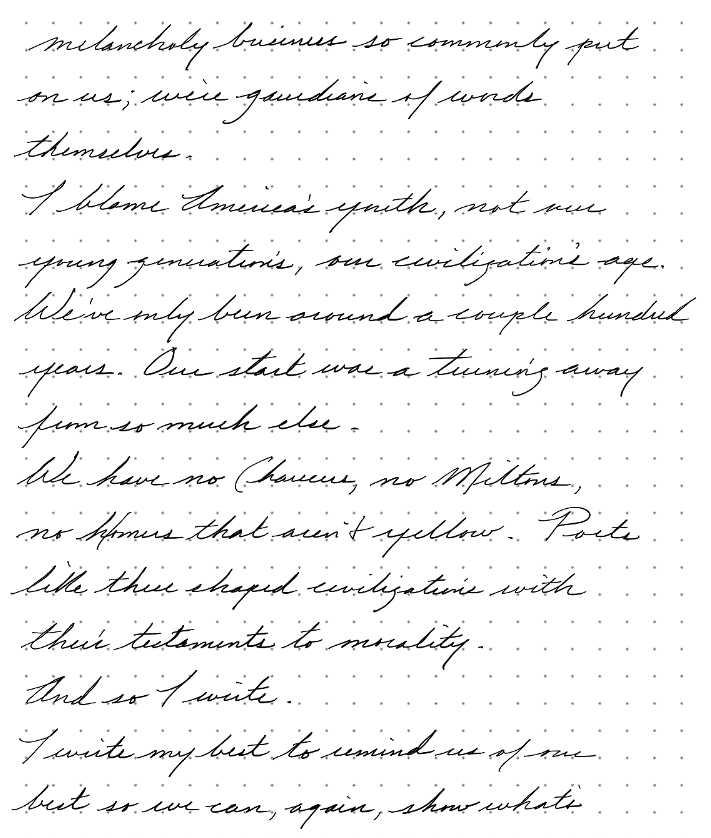 melancholy business so commonly put
on us; we're guardians of words
themselves.
I blame America's youth, not our
young generation's, our civilization's age.
We've only been around a couple hundred
years. Our start was a turning away
from so much else.
We have no Chaucers, no Miltons,
no Homers that aren't yellow. Poets
like these shaped civilizations with
their testaments to morality.
And so I write.
I write my best to remind us of our
best so we can, again, show what's